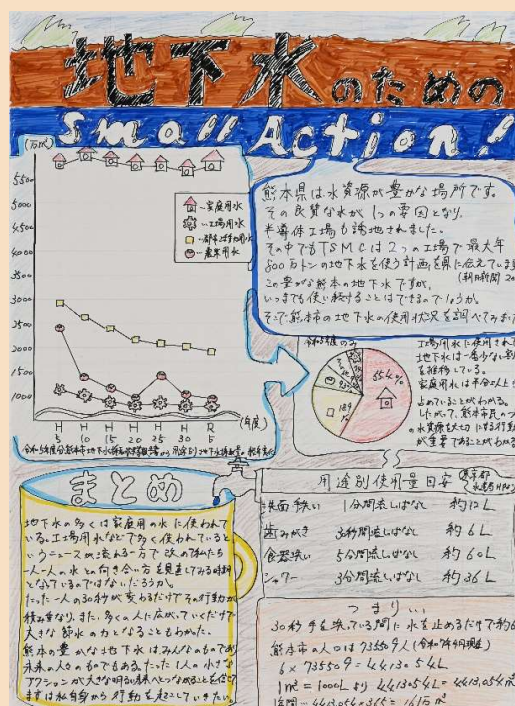 地下水のための
Small Action!
(万㎥)
5500
5000
4500
4000
3500
3000
2500
2000
1500
1000
…家庭用水
…工場用水
…都市活動用水
…農業用水
H H H H H H R
5 10 15 20 25 30 5
(年度)
熊本県は水資源が豊かな場所です。
その良質な水が1つの要因となり、
半導体工場も誘地されました。
その中でもTSMCは2つの工場で最大年
800万トンの地下水を使う計画を県に伝えていま
(朝日新聞 20
この豊かな熊本の地下水ですが、
いつまでも使い続けることはできるのでしょうか。
そこで熊本市の地下水の使用状況を調べてみまし
令和5年度のみ
55.4%
18.9
%
工場用水に使用されて
地下水は一番少ない割
を推移している。
家庭用水は半分以上を
占めていることがわかる。
したがって、熊本市民の
の水資源を大切にする行動
が重要であることがわかる
まとめ
地下水の多くは家庭用の水に使われて
いる。工場用水などで多く使われていると
いうニュースが流れる一方で改めて私たち
一人一人の水との向き合い方を見直してみる時期
となっているのではないだろうか。
たった一人の30秒が変わるだけでその行動が
積み重なり、また、多くの人に広がっていくだけで
大きな節水の力となることもわかった。
熊本の豊かな地下水はみんなのものであり
未来の人々のものでもある。たった1人の小さな
アクションが大きな明るい未来へとつながることを信じて
まずは私自身から行動を起こしていきたい。
用途別使用量目安
(東京都
水道局HPより
洗面・手洗い 1分間流しっぱなし 約12L
歯みがき 30秒間流しっぱなし 約6L
食器洗い 5分間流しっぱなし 約60L
シャワー 3分間流しっぱなし 約36L
つまり…
30秒手を洗っている間に水を止めるだけで約6
熊本市の人口は735509人(令和7年4月現在)
6×735509=4413054L
1㎥=1000Lより 4413054L=4413.054㎥
年間…4413.054×365=161万㎥